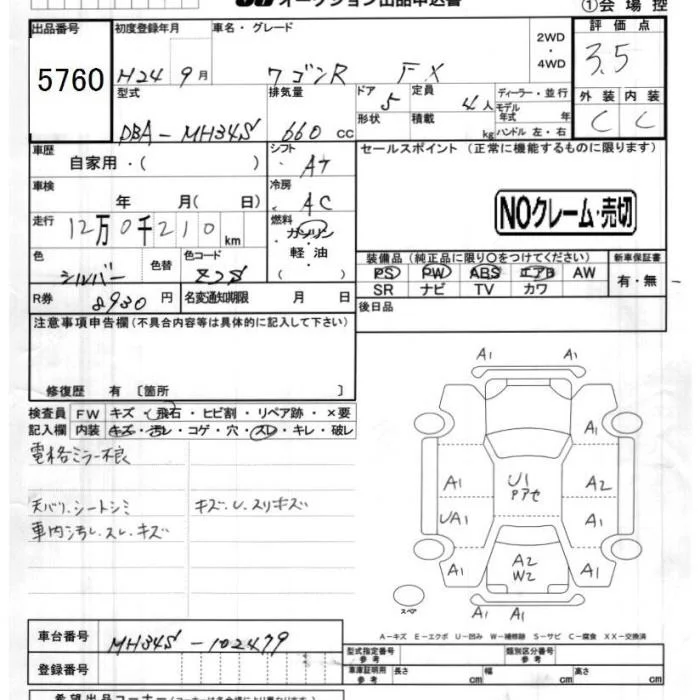 オークション出品申込書 ①会場控
出品番号 初度登録年月 車名・グレード 2WD・4WD 評価点
5760 H24 9月 ワゴンR FX 3.5
型式 排気量 ドア 定員 ディーラー・並行 外装 内装
DBA-MH34S 660 CC 5 4人 モデル年式 年 C C
形状 積載 kg ハンドル 左・右
車歴 シフト セールスポイント (正常に機能するものに限ります)
自家用・( ) AT
車検 冷房
年 月( 日) AC NOクレーム・売切
走行 12万0千210km 燃料 ガソリン・軽油( )
色 色替 色コード 装備品 (純正品に限り○をつけてください) 新車保証書
シルバー Z2S PS PW ABS エアB AW 有・無
SR ナビ TV カワ
R券 8930円 名変通知期限 月 日 後日品
注意事項申告欄(不具合内容等は具体的に記入して下さい)
修復歴 有 〔箇所 〕
検査員 FW キズ・飛石・ヒビ割・リペア跡・×要
記入欄 内装 キズ・汚レ・コゲ・穴・スレ・キレ・破レ
電格ミラー不良
天バリ.シートシミ キズ.U.スリキズ
車内汚レ.スレ.キズ
A1 A1
A1
A1 U1 アセ A2
UA1 A1
A1 A2 W2 A1
スペア A1 A1
A-キズ E-エクボ U-凹み W-補修跡 S-サビ C-腐食 XX-交換済
車台番号 MH34S-102479
型式指定番号 参考 類別区分番号 参考
登録番号 車庫証明用 参考 長さ cm 幅 cm 高さ cm
希望出品コーナー